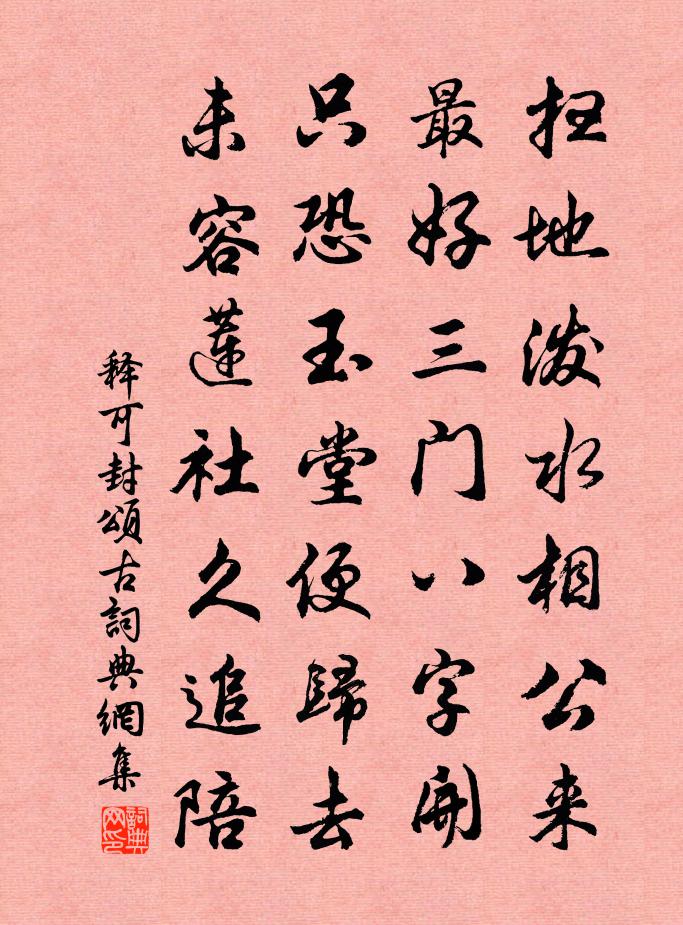 扫地泼水相公来
最好三门八字開
只恐玉堂便歸去
未容蓮社久追陪
释可封頌古詞典網集
詞典
网印